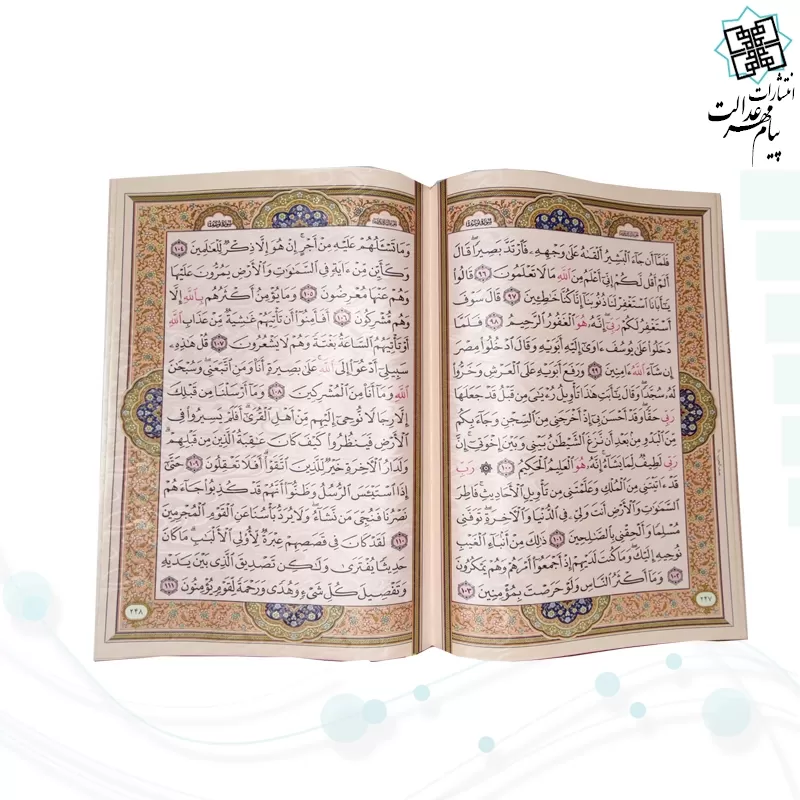 انتشارات
پیام مهر عدالت
فَلَمَّا أَن جَاءَ الْبَشِيرُ أَلْقَاهُ عَلَىٰ وَجْهِهِ فَارْتَدَّ بَصِيرًا ۖ قَالَ
أَلَمْ أَقُل لَّكُمْ إِنِّي أَعْلَمُ مِنَ اللَّهِ مَا لَا تَعْلَمُونَ ٩٦ قَالُوا
يَا أَبَانَا اسْتَغْفِرْ لَنَا ذُنُوبَنَا إِنَّا كُنَّا خَاطِئِينَ ٩٧ قَالَ سَوْفَ
أَسْتَغْفِرُ لَكُمْ رَبِّي ۖ إِنَّهُ هُوَ الْغَفُورُ الرَّحِيمُ ٩٨ فَلَمَّا
دَخَلُوا عَلَىٰ يُوسُفَ آوَىٰ إِلَيْهِ أَبَوَيْهِ وَقَالَ ادْخُلُوا مِصْرَ
إِن شَاءَ اللَّهُ آمِنِينَ ٩٩ وَرَفَعَ أَبَوَيْهِ عَلَى الْعَرْشِ وَخَرُّوا
لَهُ سُجَّدًا ۖ وَقَالَ يَا أَبَتِ هَٰذَا تَأْوِيلُ رُؤْيَايَ مِن قَبْلُ قَدْ جَعَلَهَا
رَبِّي حَقًّا ۖ وَقَدْ أَحْسَنَ بِي إِذْ أَخْرَجَنِي مِنَ السِّجْنِ وَجَاءَ بِكُم
مِّنَ الْبَدْوِ مِن بَعْدِ أَن نَّزَغَ الشَّيْطَانُ بَيْنِي وَبَيْنَ إِخْوَتِي ۚ إِنَّ
رَبِّي لَطِيفٌ لِّمَا يَشَاءُ ۚ إِنَّهُ هُوَ الْعَلِيمُ الْحَكِيمُ ١٠٠ ۞ رَبِّ
قَدْ آتَيْتَنِي مِنَ الْمُلْكِ وَعَلَّمْتَنِي مِن تَأْوِيلِ الْأَحَادِيثِ ۚ فَاطِرَ
السَّمَاوَاتِ وَالْأَرْضِ أَنتَ وَلِيِّي فِي الدُّنْيَا وَالْآخِرَةِ ۖ تَوَفَّنِي
مُسْلِمًا وَأَلْحِقْنِي بِالصَّالِحِينَ ١٠١ ذَٰلِكَ مِنْ أَنبَاءِ الْغَيْبِ
نُوحِيهِ إِلَيْكَ ۖ وَمَا كُنتَ لَدَيْهِمْ إِذْ أَجْمَعُوا أَمْرَهُمْ وَهُمْ يَمْكُرُونَ
١٠٢ وَمَا أَكْثَرُ النَّاسِ وَلَوْ حَرَصْتَ بِمُؤْمِنِينَ ١٠٣
٢٤٧
وَمَا تَسْأَلُهُمْ عَلَيْهِ مِنْ أَجْرٍ ۚ إِنْ هُوَ إِلَّا ذِكْرٌ لِّلْعَالَمِينَ ١٠٤
وَكَأَيِّن مِّنْ آيَةٍ فِي السَّمَاوَاتِ وَالْأَرْضِ يَمُرُّونَ عَلَيْهَا
وَهُمْ عَنْهَا مُعْرِضُونَ ١٠٥ وَمَا يُؤْمِنُ أَكْثَرُهُم بِاللَّهِ إِلَّا
وَهُم مُّشْرِكُونَ ١٠٦ أَفَأَمِنُوا أَن تَأْتِيَهُمْ غَاشِيَةٌ مِّنْ عَذَابِ اللَّهِ
أَوْ تَأْتِيَهُمُ السَّاعَةُ بَغْتَةً وَهُمْ لَا يَشْعُرُونَ ١٠٧ قُلْ هَٰذِهِ
سَبِيلِي أَدْعُو إِلَى اللَّهِ ۚ عَلَىٰ بَصِيرَةٍ أَنَا وَمَنِ اتَّبَعَنِي ۖ وَسُبْحَانَ
اللَّهِ وَمَا أَنَا مِنَ الْمُشْرِكِينَ ١٠٨ وَمَا أَرْسَلْنَا مِن قَبْلِكَ
إِلَّا رِجَالًا نُّوحِي إِلَيْهِم مِّنْ أَهْلِ الْقُرَىٰ ۗ أَفَلَمْ يَسِيرُوا فِي
الْأَرْضِ فَيَنظُرُوا كَيْفَ كَانَ عَاقِبَةُ الَّذِينَ مِن قَبْلِهِمْ ۗ
وَلَدَارُ الْآخِرَةِ خَيْرٌ لِّلَّذِينَ اتَّقَوْا ۗ أَفَلَا تَعْقِلُونَ ١٠٩ حَتَّىٰ
إِذَا اسْتَيْأَسَ الرُّسُلُ وَظَنُّوا أَنَّهُمْ قَدْ كُذِبُوا جَاءَهُمْ
نَصْرُنَا فَنُجِّيَ مَن نَّشَاءُ ۖ وَلَا يُرَدُّ بَأْسُنَا عَنِ الْقَوْمِ الْمُجْرِمِينَ
١١٠ لَقَدْ كَانَ فِي قَصَصِهِمْ عِبْرَةٌ لِّأُولِي الْأَلْبَابِ ۗ مَا كَانَ
حَدِيثًا يُفْتَرَىٰ وَلَٰكِن تَصْدِيقَ الَّذِي بَيْنَ يَدَيْهِ
وَتَفْصِيلَ كُلِّ شَيْءٍ وَهُدًى وَرَحْمَةً لِّقَوْمٍ يُؤْمِنُونَ ١١١
٢٤٨